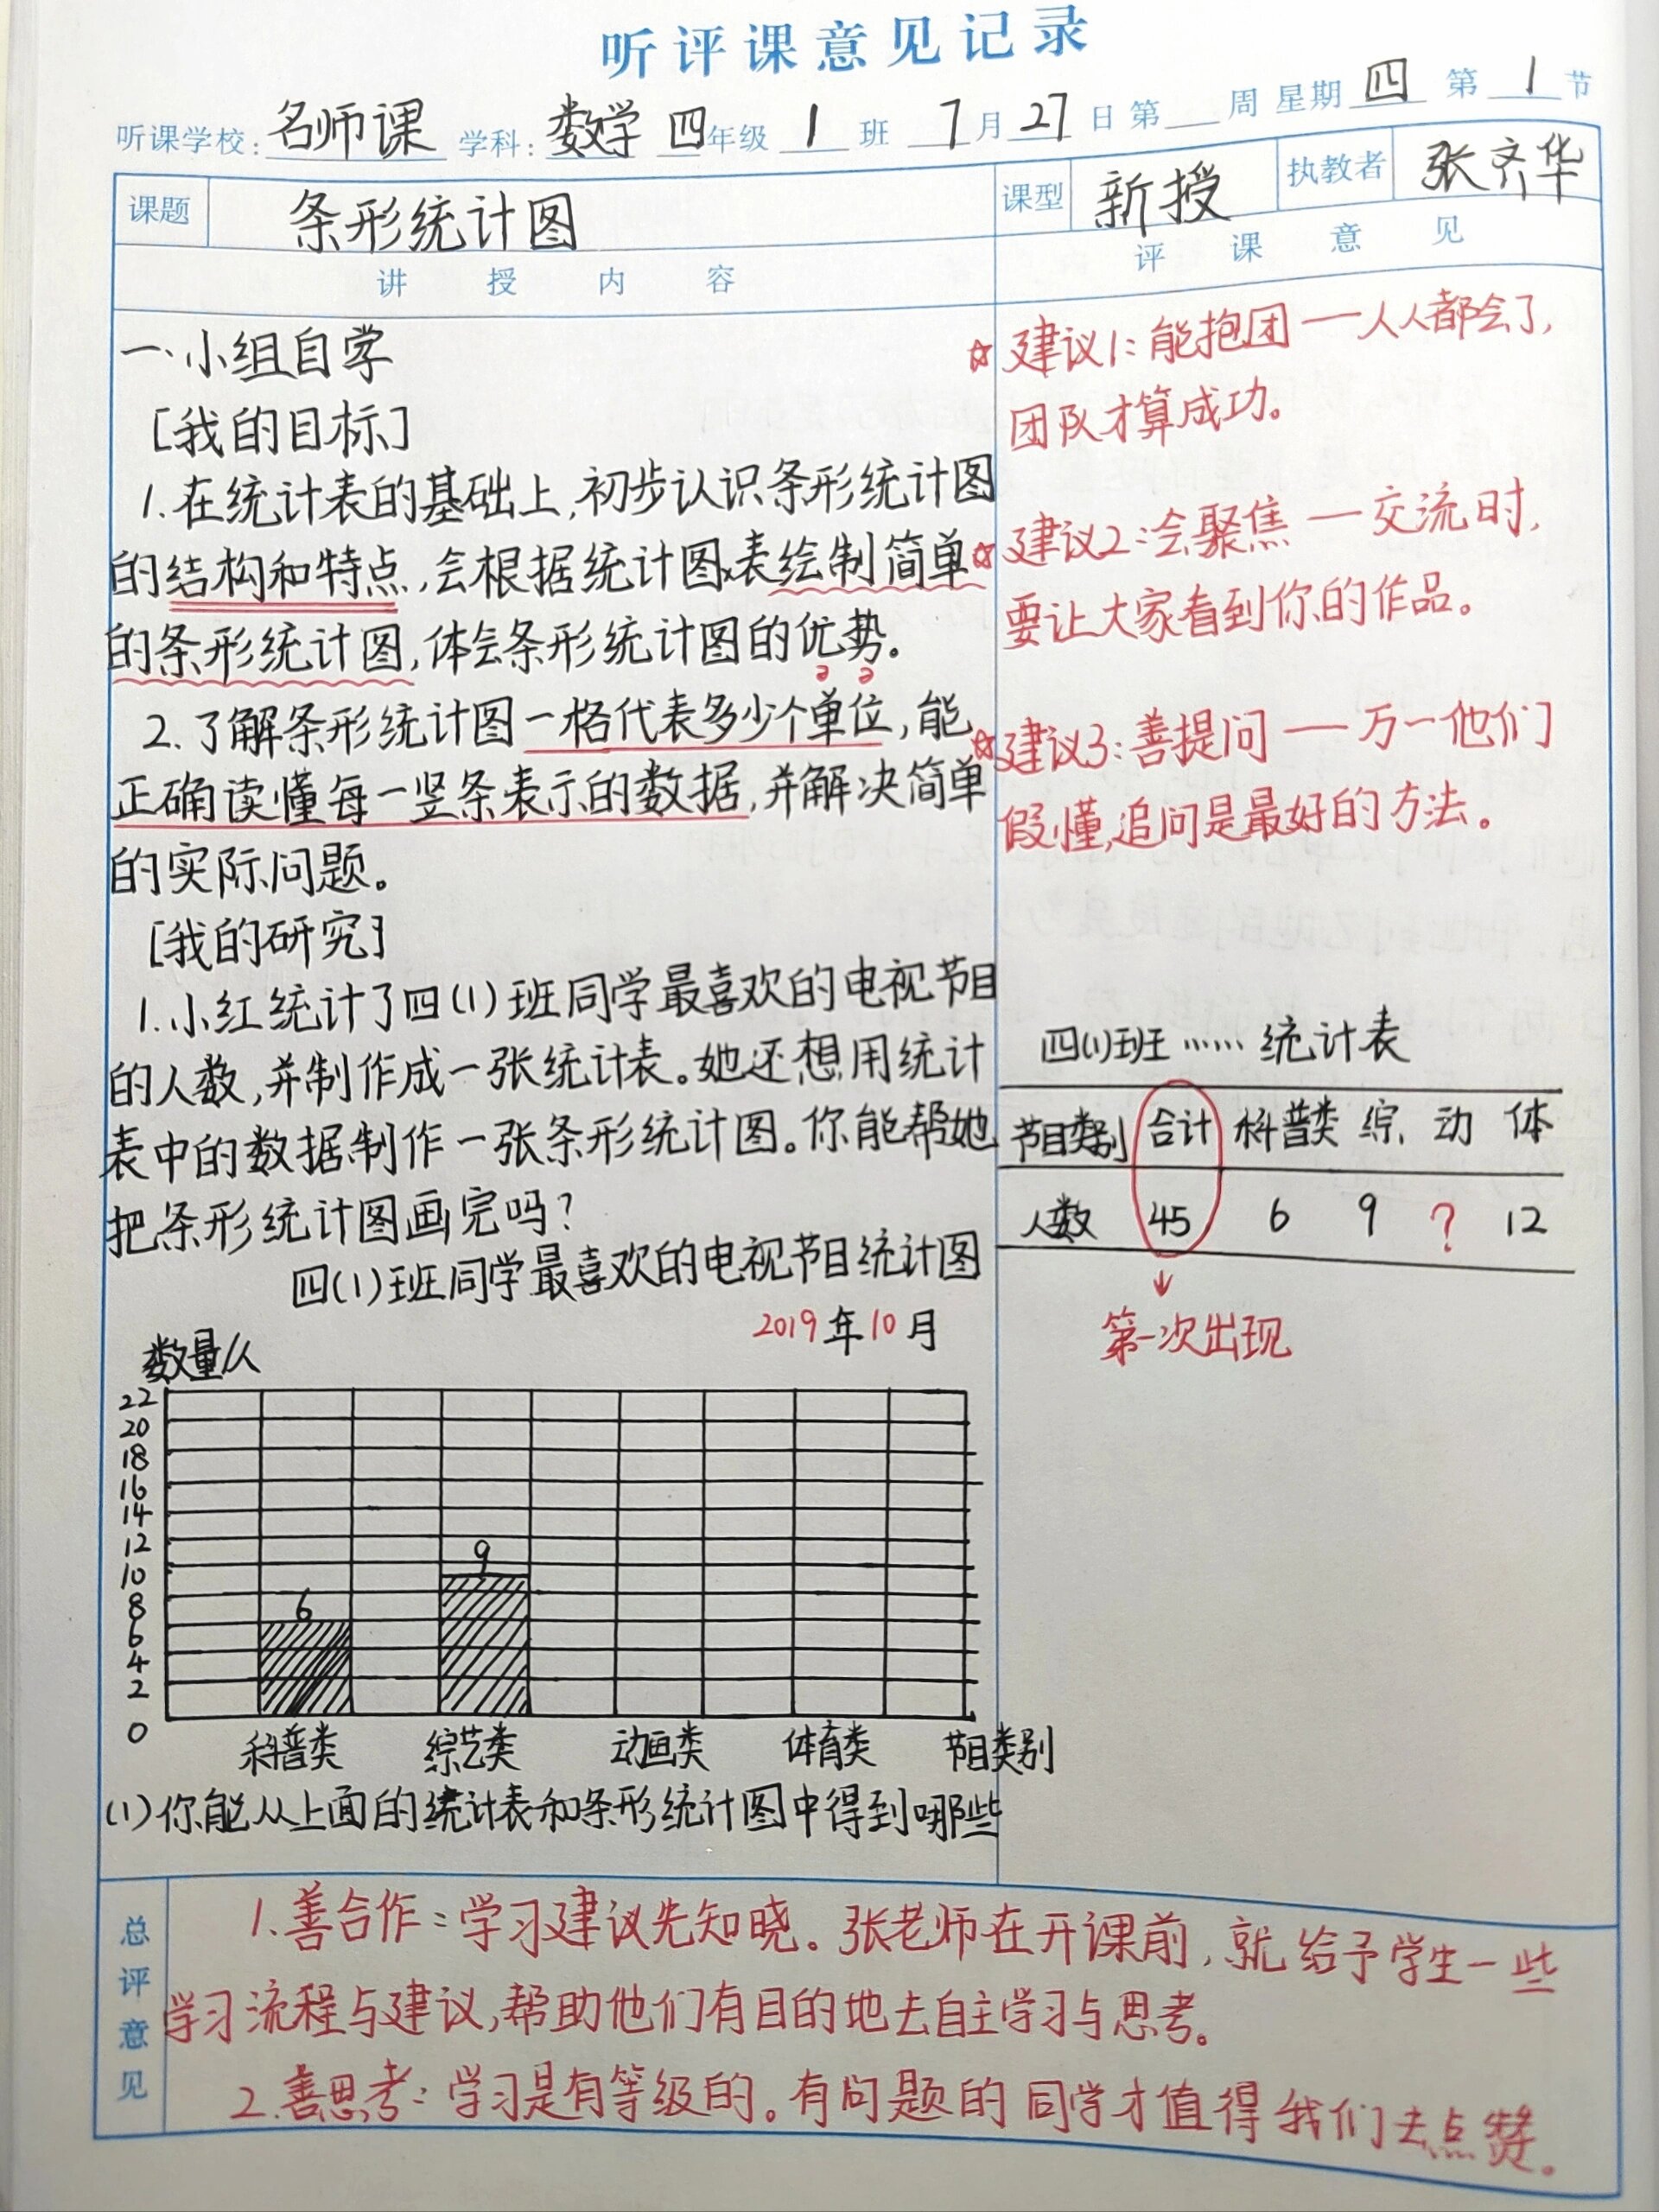 听评课意见记录
听课学校：名师课 学科：数学 四年级 1 班 7月27日 第 周 星期四 第1节
课题 条形统计图 课型 新授 执教者 张齐华
讲授内容
评课意见
一、小组自学
[我的目标]
1.在统计表的基础上,初步认识条形统计图
的结构和特点,会根据统计图表绘制简单
的条形统计图,体会条形统计图的优势。
2.了解条形统计图一格代表多少个单位,能
正确读懂每一竖条表示的数据,并解决简单
的实际问题。
[我的研究]
1.小红统计了四(1)班同学最喜欢的电视节目
的人数,并制作成一张统计表。她还想用统计
表中的数据制作一张条形统计图。你能帮她
把条形统计图画完吗?
四(1)班同学最喜欢的电视节目统计图
2019年10月
数量/人
22
20
18
16
14
12
10
8
6
4
2
0
6
9
科普类 综艺类 动画类 体育类 节目类别
(1)你能从上面的统计表和条形统计图中得到哪些
☆建议1:能抱团——人人都会了,
团队才算成功。
☆建议2:会聚焦——交流时,
要让大家看到你的作品。
☆建议3:善提问——万一他们
假懂,追问是最好的方法。
四(1)班……统计表
节目类别 合计 科普类 综 动 体
人数 45 6 9 ? 12
↓
第一次出现
总评意见
1.善合作:学习建议先知晓。张老师在开课前,就给予学生一些
学习流程与建议,帮助他们有目的地去自主学习与思考。
2.善思考:学习是有等级的。有问题的同学才值得我们去点赞。